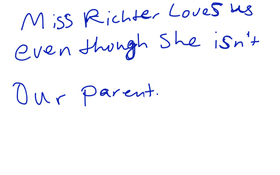 Miss Richter Loves us
even though She isn't
Our parent.